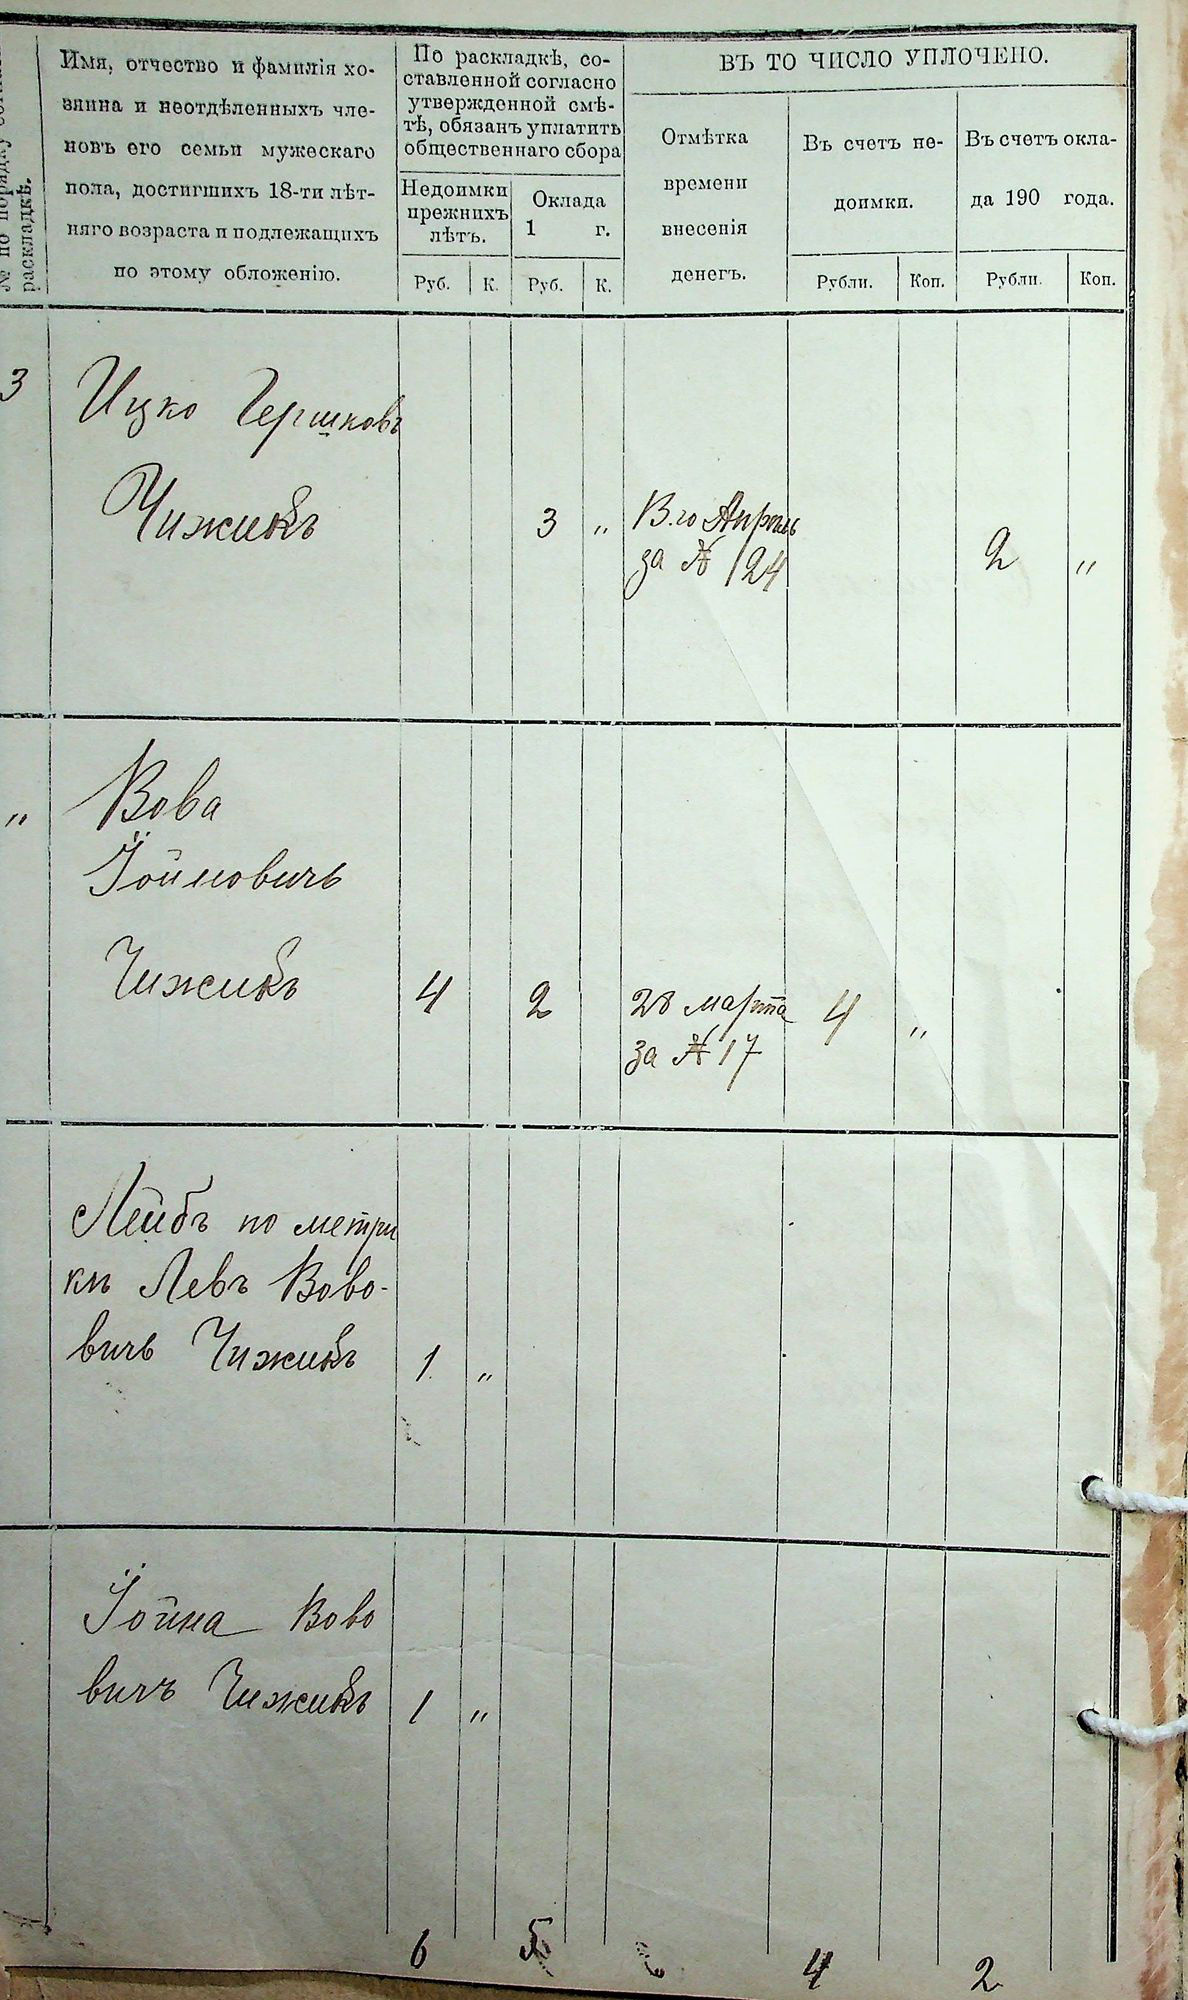 № по порядку
раскладкѣ.
Имя, отчество и фамилія хо-
зяина и неотдѣленныхъ чле-
новъ его семьи мужескаго
пола, достигшихъ 18-ти лѣт-
няго возраста и подлежащихъ
по этому обложенію.
По раскладкѣ, со-
ставленной согласно
утвержденной смѣ-
тѣ, обязанъ уплатить
общественнаго сбора
Недоимки
прежнихъ
лѣтъ.
Оклада
1 г.
Руб. К. Руб. К.
ВЪ ТО ЧИСЛО УПЛОЧЕНО.
Отмѣтка
времени
внесенія
денегъ.
Въ счетъ не-
доимки.
Въ счетъ окла-
да 190 года.
Рубли. Коп. Рубли. Коп.
3 Ицко Гершковъ
Чижикъ 3 „ Апрѣль
за № 124 2 „
„ Вова
Іойновичъ
Чижикъ 4 2 28 марта 4 „
за № 17
Лейбъ по метри
кѣ Левъ Вово-
вичъ Чижикъ 1 „
Іойна Вово
вичъ Чижикъ 1 „
6 5 4 2